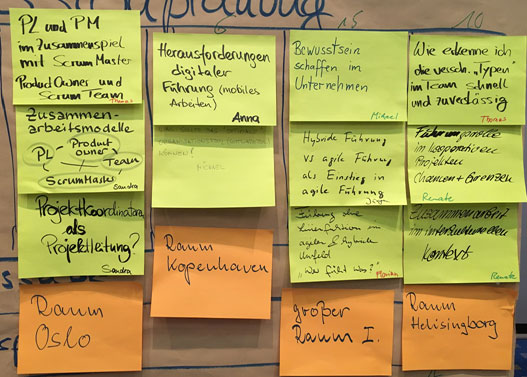 PL und PM
im Zusammenspiel
mit Scrum Master
Product Owner und
Scrum Team
Thomas
Zusammen-
arbeitsmodelle
PL Product
owner
Team
ScrumMaster
Sandra
Projektkoordinatoren
als
Projektleitung?
Sandra
Raum
Oslo
Herausforderungen
digitaler
Führung (mobiles
Arbeiten)
Anna
Raum
Kopenhaven
15
Bewusstsein
schaffen im
Unternehmen
Michael
Hybride Führung
vs agile Führung
als Einstieg in
agile Führung
Führung ohne
im
agilen & hybriden
Umfeld
"Wer führt wo?"
großer
Raum I.
10
Wie erkenne ich
die versch. "Typen"
im Team schnell
und zuverlässig
Thomas
in kooperativen
Projekten
Chancen + Grenzen
Renate
Zusammenarbeit
im interkulturellen
Kontext
Renate
Raum
Helisingborg